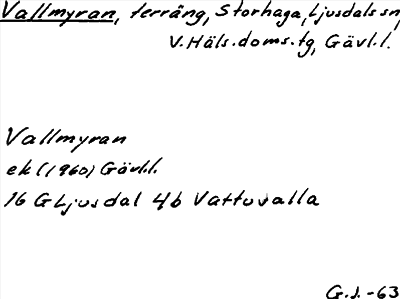 Vallmyran, terräng, Storhaga, Ljusdals sn,
V.Häls.doms.tg, Gävl.l.
Vallmyran
ek (1960) Gävl.l.
16 G Ljusdal 4b Vattuvalla
G.J. -63